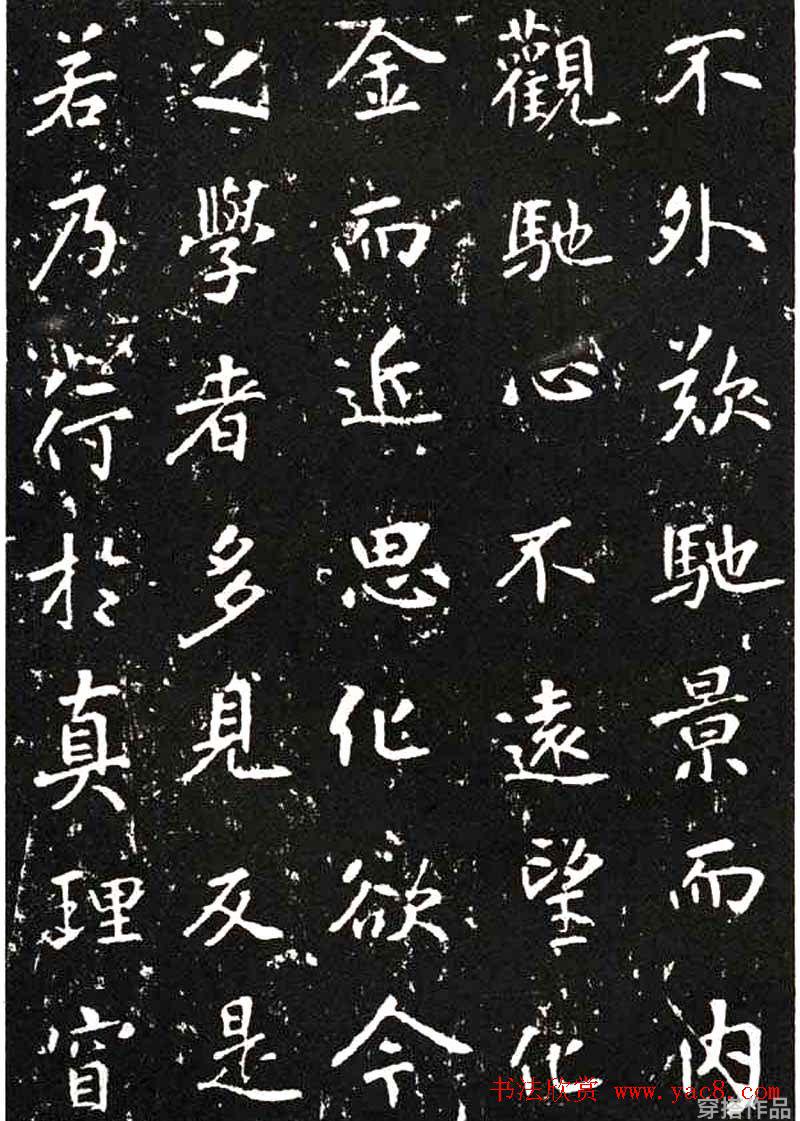 不外歎馳景而内
觀馳心不遠望化
金而近思化欲今
之學者多見反是
若乃符於真理窅
书法欣赏 www.yac8.com
穿搭作品